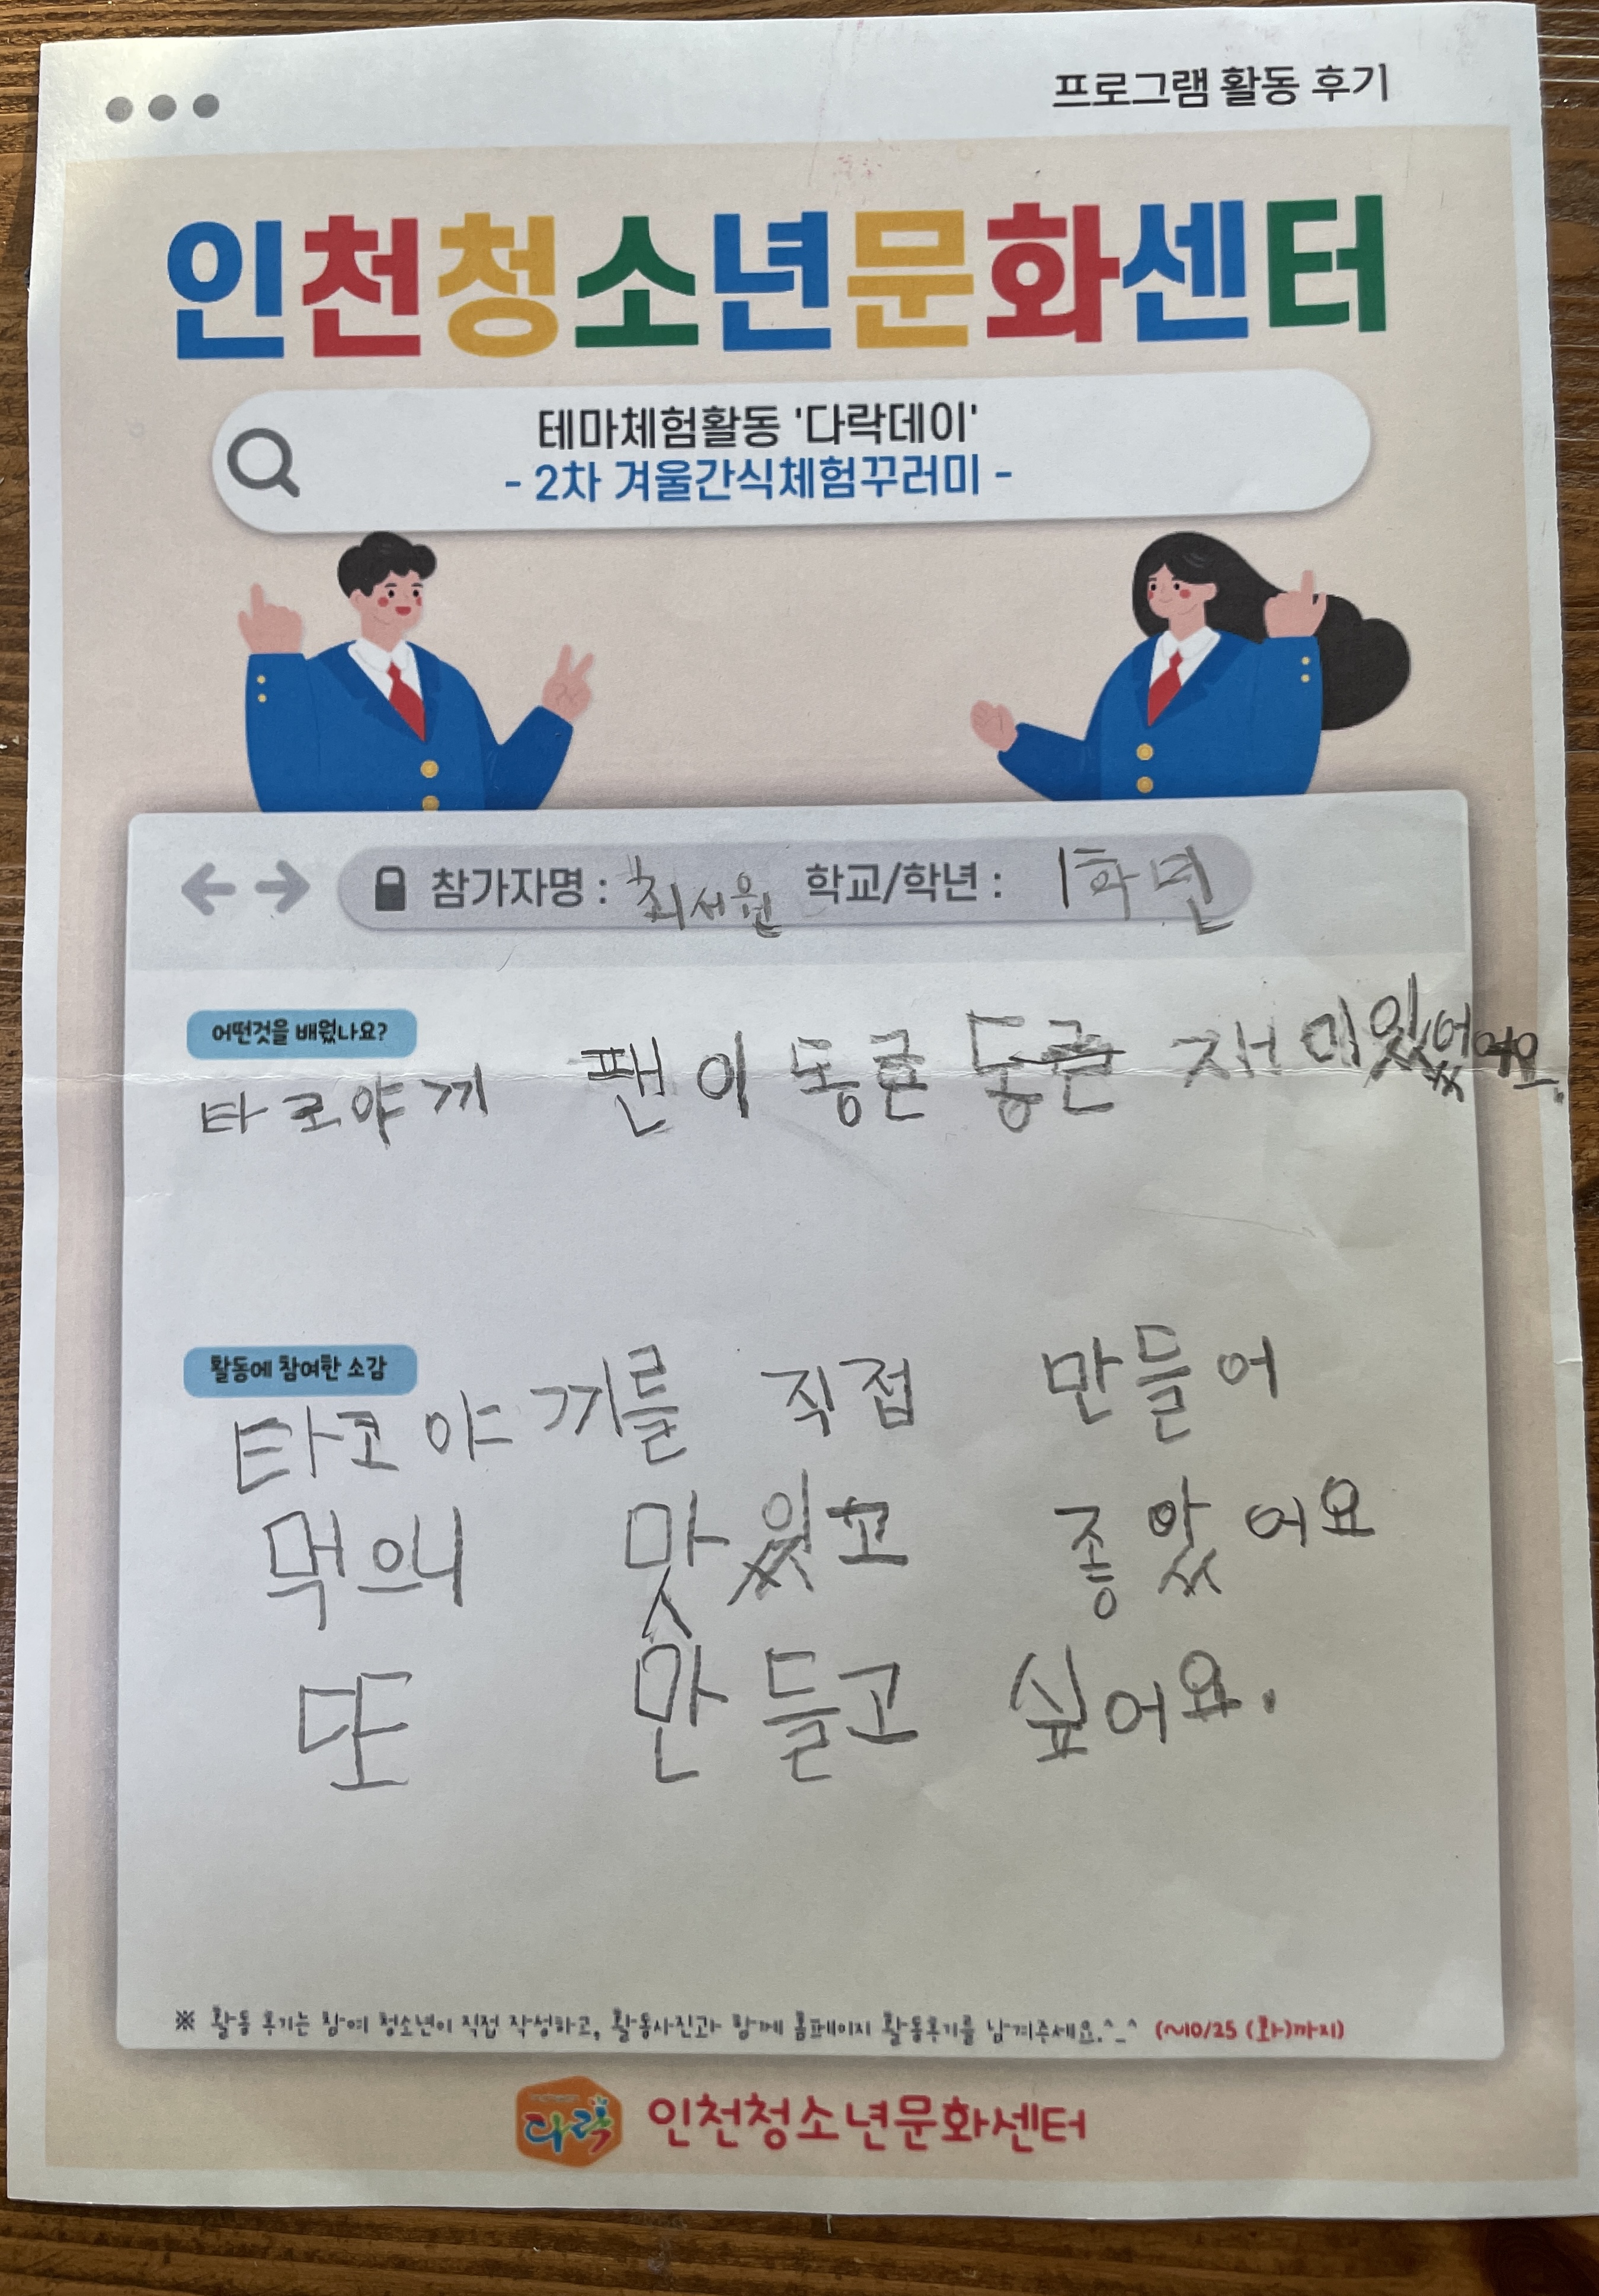 프로그램 활동 후기
인천청소년문화센터
테마체험활동 '다락데이'
- 2차 겨울간식체험꾸러미 -
참가자명 : 최서원 학교/학년 : 1학년
어떤것을 배웠나요?
타코야끼 팬이 동글 동글 재미있었어요.
활동에 참여한 소감
타코야끼를 직접 만들어
먹으니 맛있고 좋았어요
또 만들고 싶어요.
※ 활동 후기는 참여 청소년이 직접 작성하고, 활동사진과 함께 홈페이지 활동후기를 남겨주세요.^_^ (~10/25 (화)까지)
다락 인천청소년문화센터